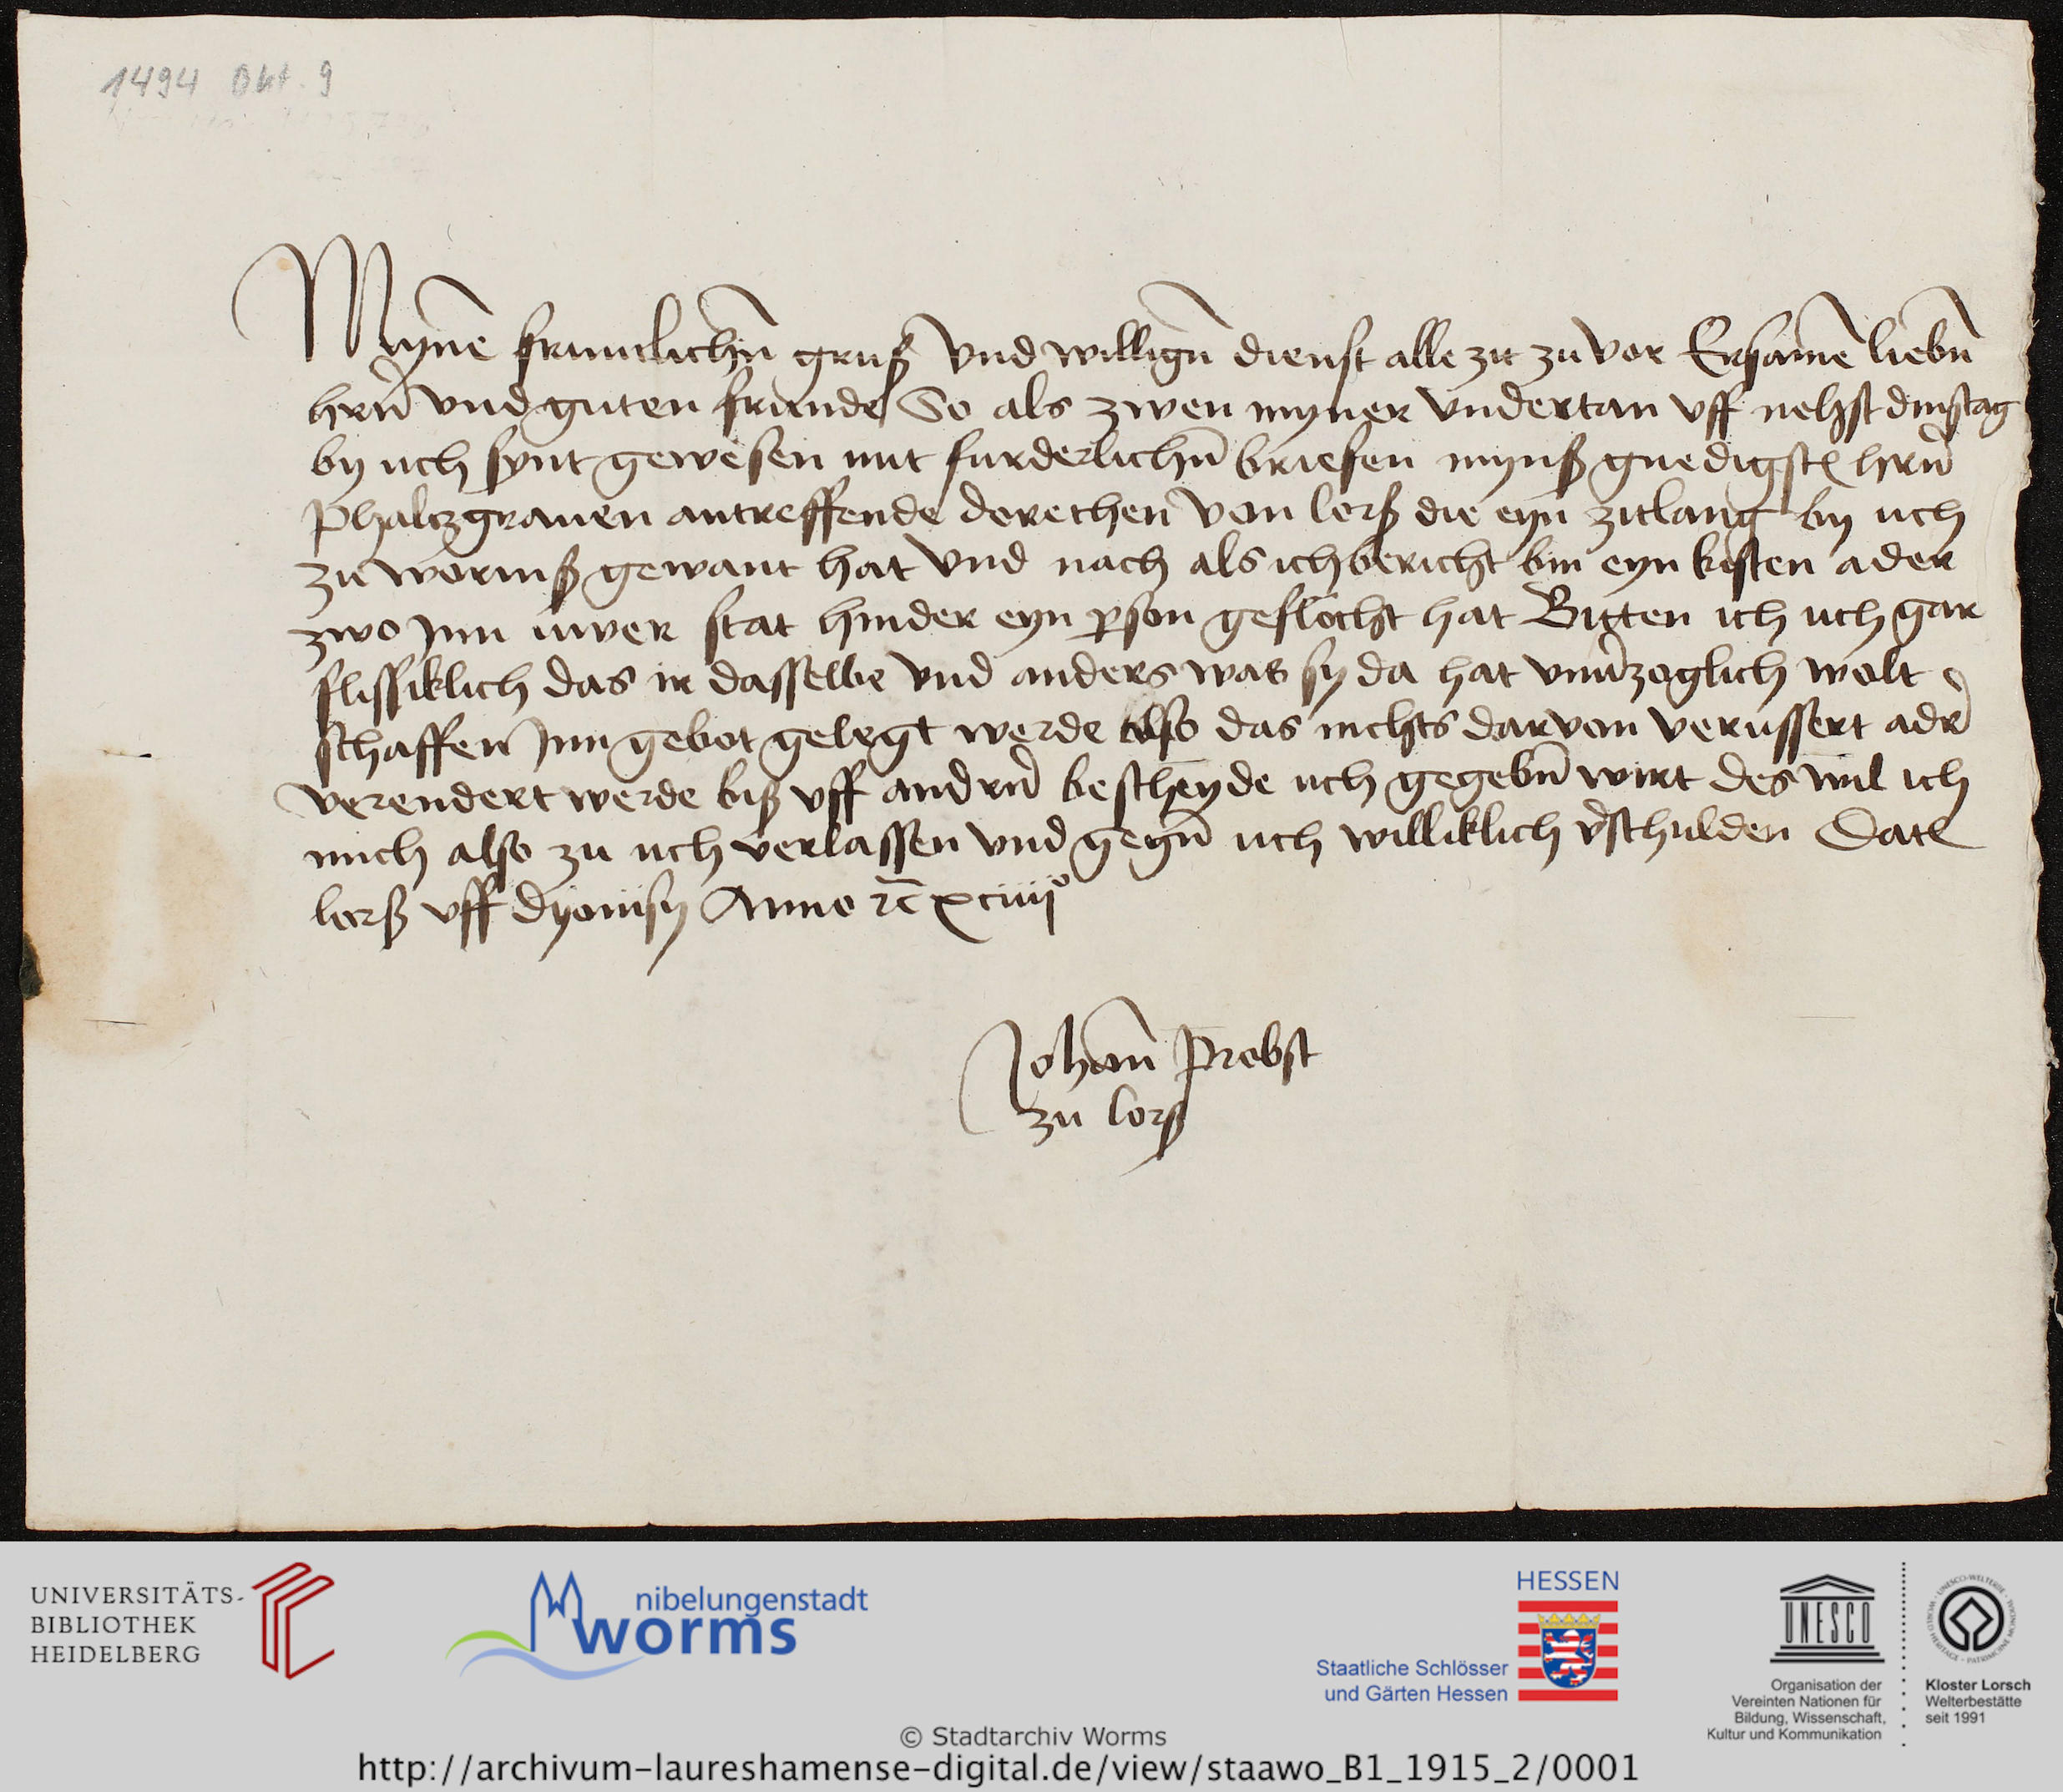 1494 Okt. 9
Mynē fruntlichn̄ gruß Vnd willign̄ dienst alle zit zu vor Ersamē liebn̄
hrn̄ vnd guten frunde So als zwen myner Vndertan vff nehst dinstag
by uch synt gewesen mit furderlichn̄ briefen mynß gnedigstē hrn̄
Phaltzgrauen antreffende Derethen von lorß die eyn zitlang by uch
zu wormß gewant hat Vnd nach als ich bericht bin eyn kisten ader
zwo Jnn uwer stat hinder eyn p̱son geflöcht hat Bitten ich uch gar
flissiklich das ir dasselbe Vnd anders was sy da hat vnu̕zoglich wolt
schaffen Jnn gebot gelegt werde also das nichts darvon verussert adr̄
verendert werde biß vff andrn̄ bescheyde uch gegebn̄ wirt des wil ich
mich also zu uch verlassen vnd gegn̄ uch williklich v̕schulden Datē
lorß vff Dyonisy Anno rc̄ xciiijº
Johan̄ Probst
zu lorß
UNIVERSITÄTS-
BIBLIOTHEK
HEIDELBERG
nibelungenstadt
worms
HESSEN
Staatliche Schlösser
und Gärten Hessen
UNESCO
Organisation der
Vereinten Nationen für
Bildung, Wissenschaft,
Kultur und Kommunikation
Kloster Lorsch
Welterbestätte
seit 1991
© Stadtarchiv Worms
http://archivum-laureshamense-digital.de/view/staawo_B1_1915_2/0001